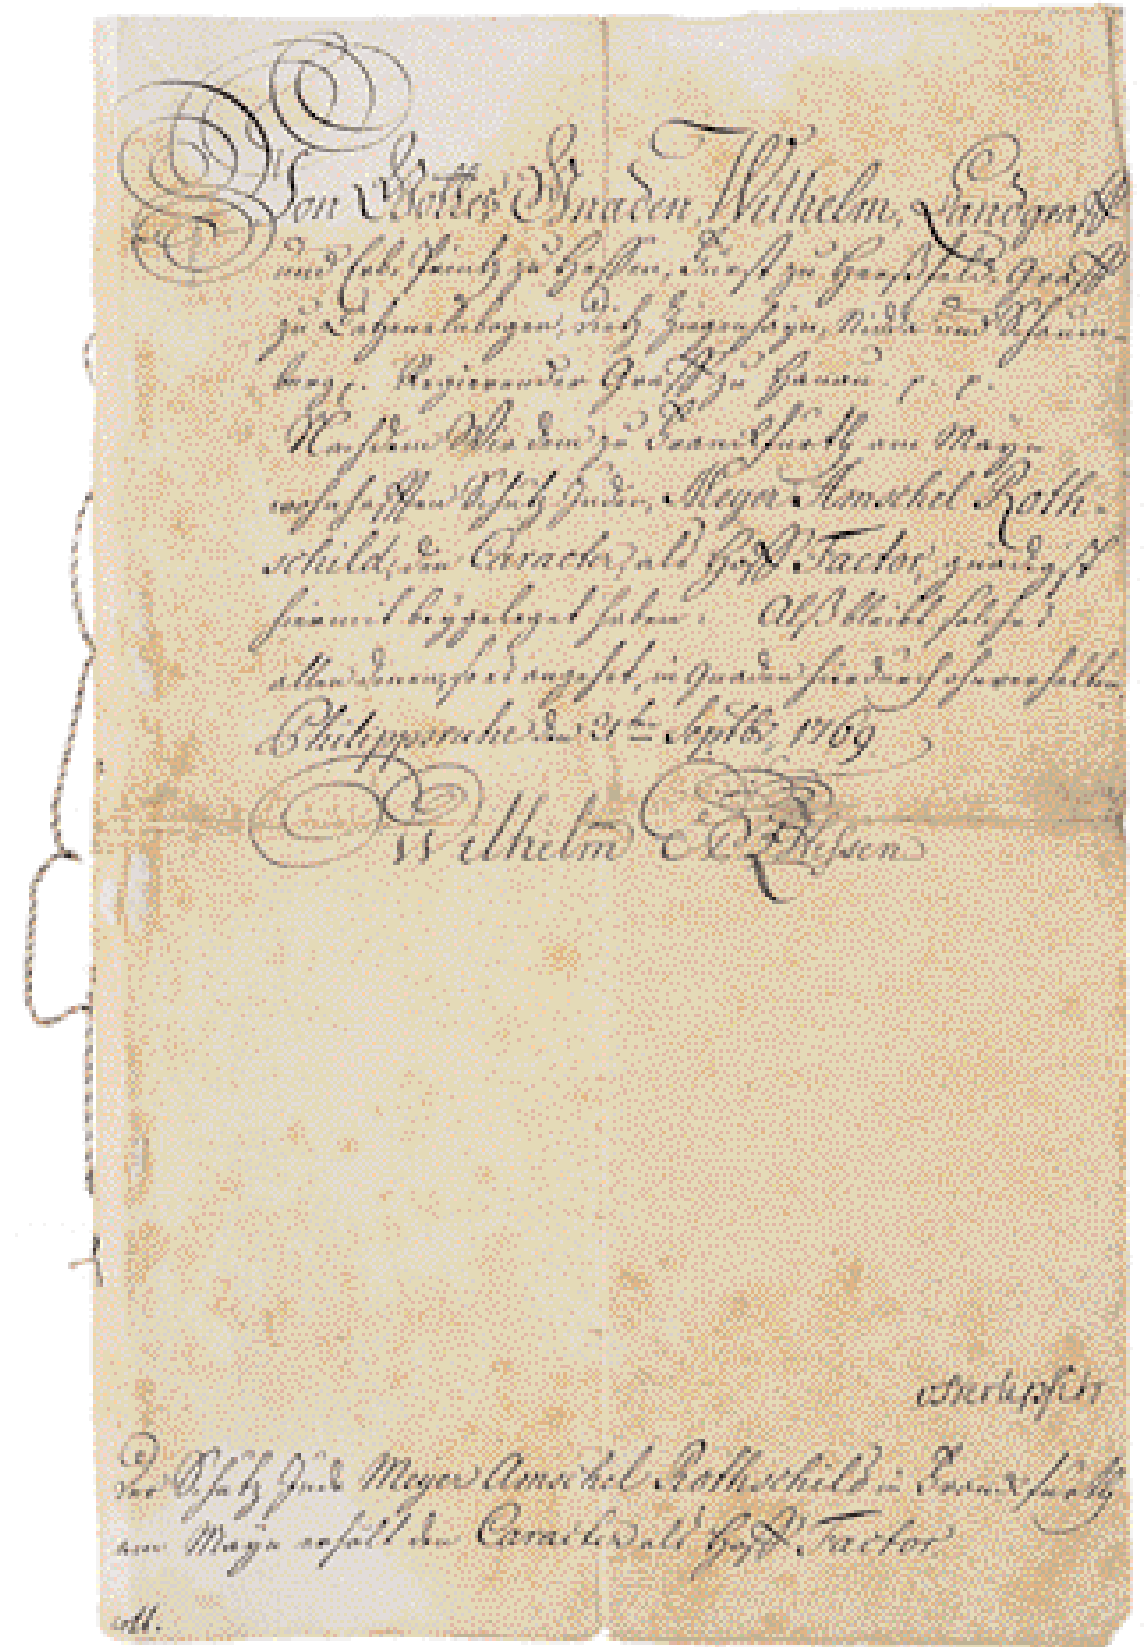 Von Gottes Gnaden Wilhelm, Landgraff
und Erb Printz zu Hessen, Fürst zu Herßfeld, Graff
zu Catzenelnbogen, Dietz, Ziegenhayn, Nidda und Schaum-
burg, Regierender Graff zu Hanau. p. p.
Nachdem Wir dem zu Franckfurth am Mayn
wohnhafften Schutz Juden, Meyer Amschel Roth-
schild, den Caracter, als Hoff Factor, gnädigst
hiermit beygeleget haben: Alß bleibt solches
allen denen, so es angehet, in Gnaden hierdurch ohnverhalten
Philippsruhe den 21ten Septbr. 1769
Wilhelm EP Hessen
vBerlepsch
Der Schutz Jude Meyer Amschel Rothschild in Franckfurth
am Mayn erhält den Caracter als Hoff Factor.